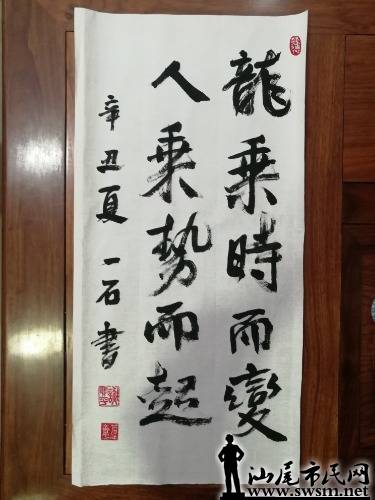 龍乘時而變
人乘勢而起
辛丑夏一石書
汕尾市民网
www.swsm.net